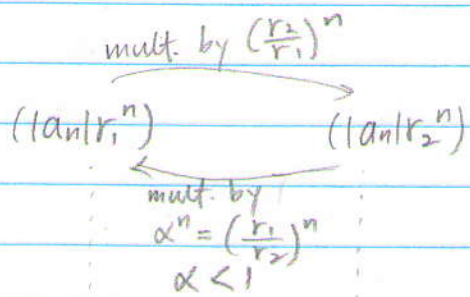 mult. by (r₂/r₁)ⁿ
(|aₙ|r₁ⁿ) (|aₙ|r₂ⁿ)
mult. by
αⁿ = (r₁/r₂)ⁿ
α < 1